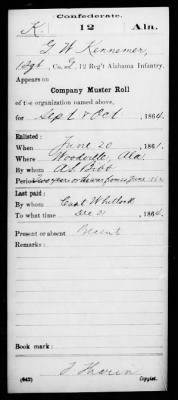 Confederate.
K. 12 Ala.
G. W. Kennemer,
1 Sgt, Co. G, 12 Reg't Alabama Infantry.
Appears on
Company Muster Roll
of the organization named above,
for Sept & Oct, 1864.
Enlisted:
When June 20, 1861.
Where Woodville, Ala.
By whom A. S. Bibb
Period
Last paid:
By whom Capt. Whitlock
To what time Dec 31, 1864.
Present or absent Present
Remarks:
Book mark:
(642) Copyist.